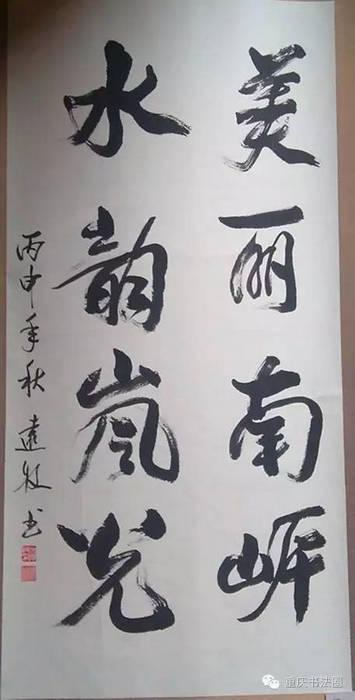 美丽南岸
水韵岚光
丙申年秋 远牧书
重庆书法圈